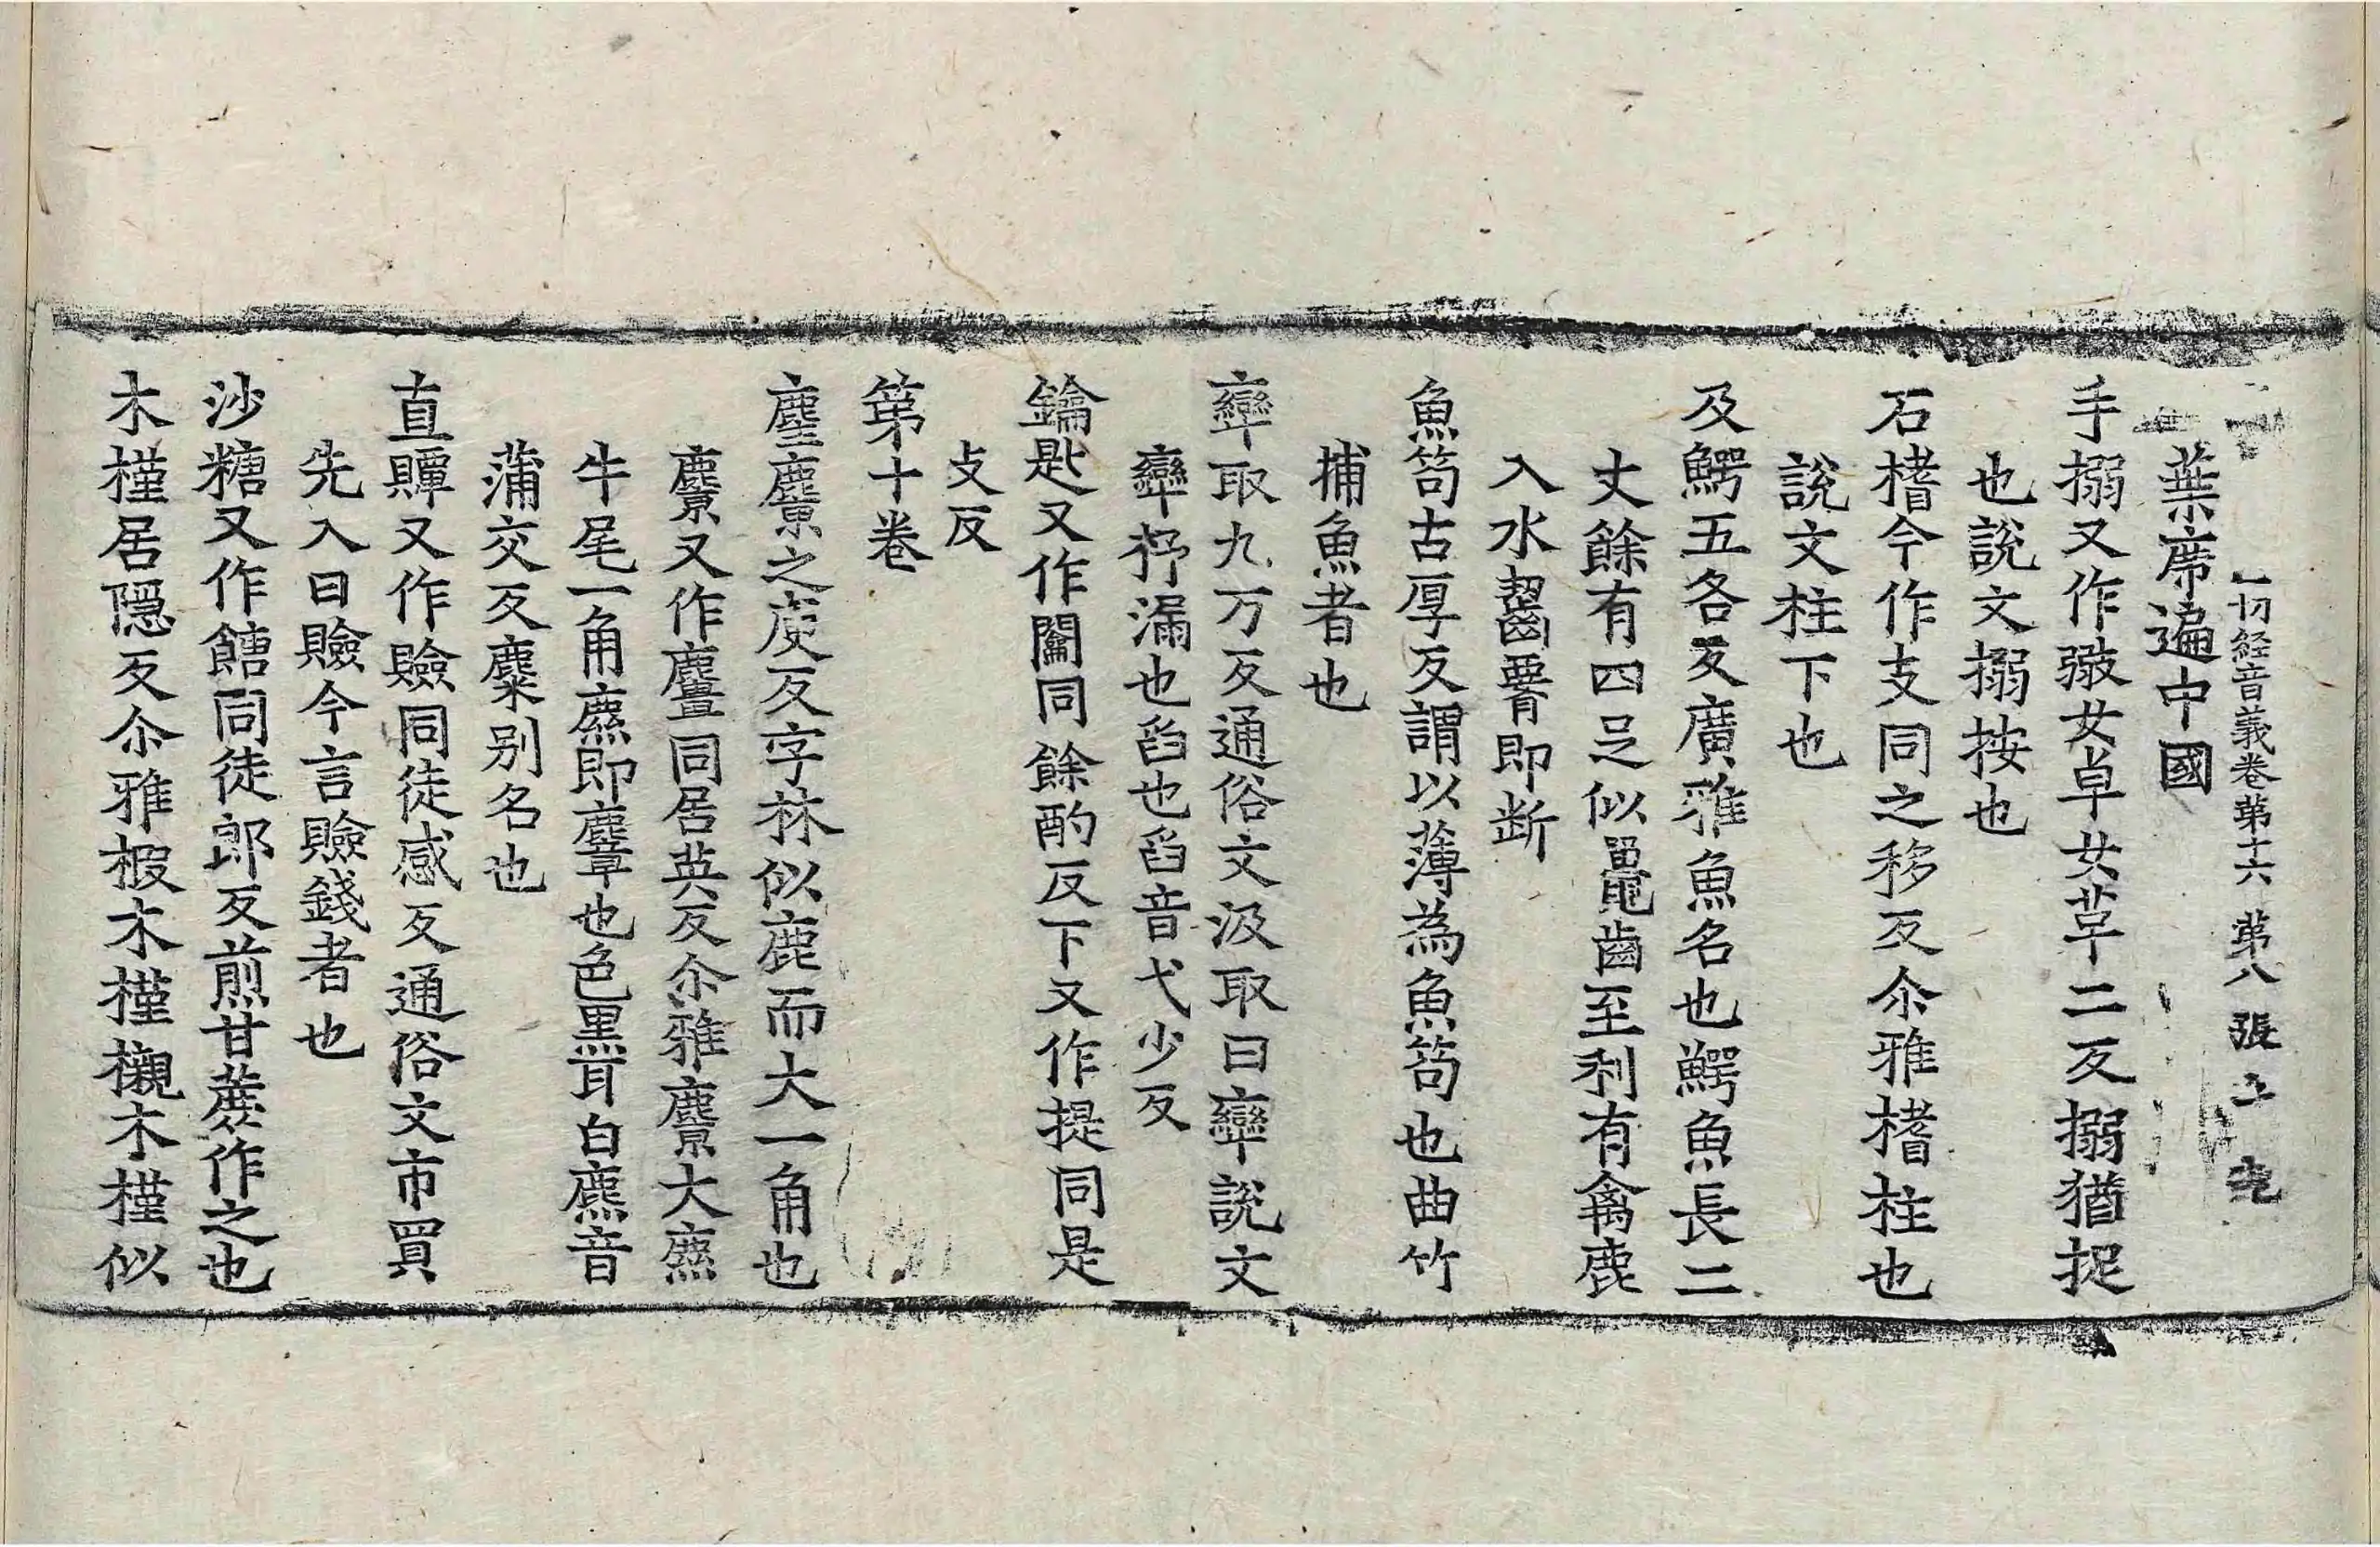 一切経音義卷苐十六 苐八張 土
葉席遍中國
手搦又作㧻女卓女草二反搦猶捉
也說文搦按也
石榰今作支同之移反尒雅榰柱也
說文柱下也
及鰐五各反廣雅魚名也鰐魚長二
丈餘有四足似鼉齒至利有禽鹿
入水齧䏿即断
魚笱古厚反謂以薄為魚笱也曲竹
捕魚者也
㪻取九万反通俗文汲取曰㪻說文
㪻抒漏也舀也舀音弋少反
鑰匙又作闟同餘酌反下又作提同是
攴反
苐十卷
麈䴦之庾反字林似鹿而大一角也
麖又作䴫同居英反尒雅麖大麃
牛尾一角麃即麞也色黑耳白麃音
蒲交反麋别名也
直贉又作賧同徒感反通俗文市買
先入曰賧今言賧錢者也
沙糖又作餹同徒郎反煎甘蔗作之也
木槿居隱反尒雅椵木槿櫬木槿似